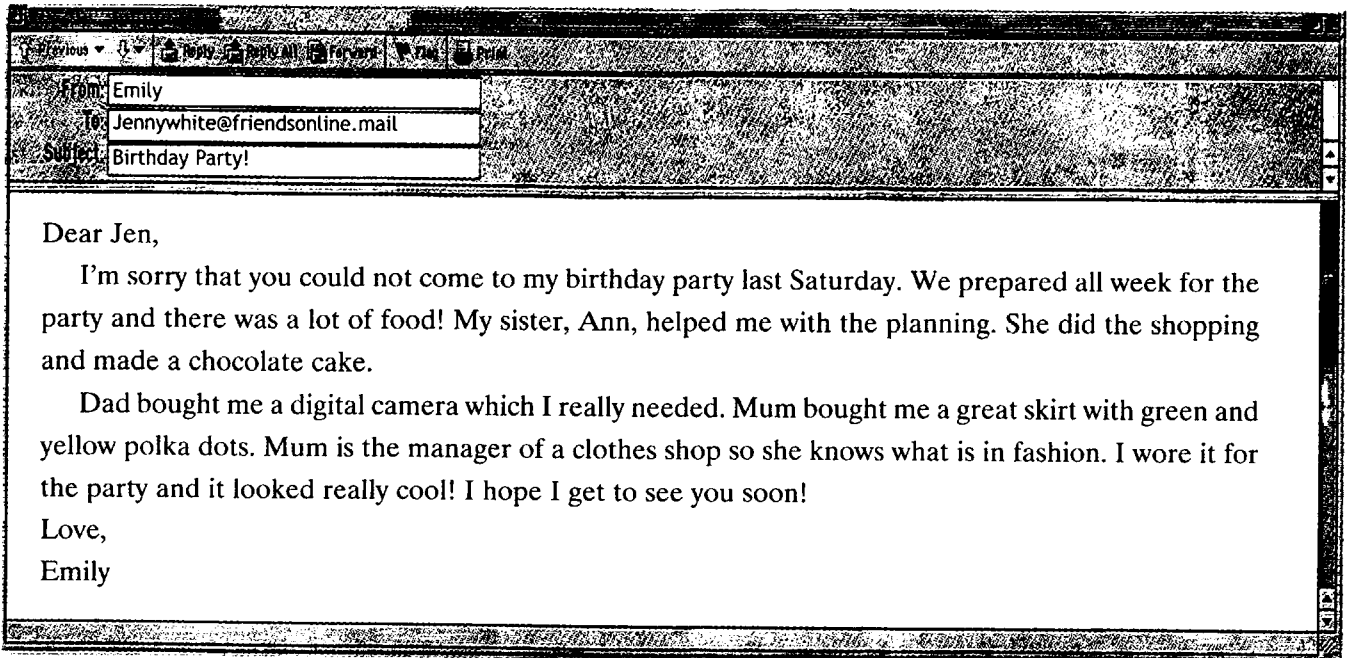 Previous Reply Reply All Forward Flag Print
From: Emily
To: Jennywhite@friendsonline.mail
Subject: Birthday Party!
Dear Jen,
I'm sorry that you could not come to my birthday party last Saturday. We prepared all week for the
party and there was a lot of food! My sister, Ann, helped me with the planning. She did the shopping
and made a chocolate cake.
Dad bought me a digital camera which I really needed. Mum bought me a great skirt with green and
yellow polka dots. Mum is the manager of a clothes shop so she knows what is in fashion. I wore it for
the party and it looked really cool! I hope I get to see you soon!
Love,
Emily